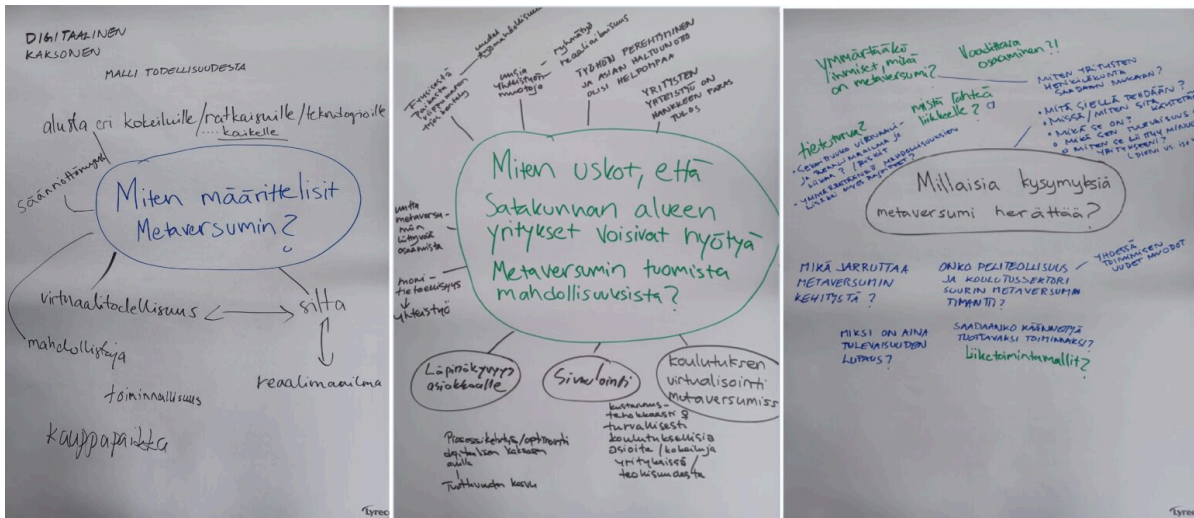 DIGITAALINEN
KAKSONEN
MALLI TODELLISUUDESTA
alusta eri kokeiluille/ratkaisuille/teknologioille
.... kaikelle
säännöttömyys
Miten määrittelisit
Metaversumin?
virtuaalitodellisuus
silta
mahdollistaja
reaalimaailma
toiminnallisuus
kauppapaikka
Tyreco
Fyysisestä
paikasta
riippumaton
työskentely
uudet
uusia
yhteistyön
muotoja
ryhmätyö
reaaliaikaisuus
TYÖHÖN PEREHTYMINEN
JA ASIAN HALTUUNOTTO
OLISI HELPOMPAA
YRITYSTEN
YHTEISTYÖ ON
HANKKEEN PARAS
TULOS
Miten uskot, että
Satakunnan alueen
yritykset voisivat hyötyä
Metaversumin tuomista
mahdollisuuksista?
uutta
metaversu-
miin
liittyvää
osaamista
moni-
tieteellisyys
yhteistyö
Läpinäkyvyys
asiakkaalle
Simulointi
koulutuksen
virtualisointi
Metaversumiss
Prosessikehitys/optimointi
digitaalisen kaksosen
avulla
Tuottavuuden kasvu
kustannus-
tehokkaasti &
turvallisesti
koulutuksellisia
asioita/kokeiluja
yrityksissä/
teollisuudesta
Tyreco
YMMÄRTÄÄKÖ
IHMISET, MITÄ
ON METAVERSUMI?
Vaadittava
osaaminen?!
mistä lähteä
liikkeelle?
MITEN YRITYSTEN
HENKILÖKUNTA
SAADAAN MUKAAN?
MITÄ SIELLÄ TEHDÄÄN?
MISSÄ/MITEN SITÄ KÄYTETÄÄN
MIKÄ SE ON?
MIKÄ SEN TULEVAISUUS
MITEN SE LIITTYY MINUN
YRITYKSEENI?
(PIENI VS ISO
tietoturva?
SEKOITTUUKO VIRTUAALI-
JA REAALIMAAILMA JO
LIIKAA? / RISKIT
YMMÄRRETÄÄNKÖ MAHDOLLISUUKSIEN
LISÄKSI MYÖS RAJOITTEET?
Millaisia kysymyksiä
metaversumi herättää?
MIKÄ JARRUTTAA
METAVERSUMIN
KEHITYSTÄ?
ONKO PELITEOLLISUUS
JA KOULUTUSSEKTORI
SUURIN METAVERSUMIN
TIMANTTI?
YHDESSÄ
TOIMIMISEN
UUDET MUODOT
MIKSI ON AINA
TULEVAISUUDEN
LUPAUS?
SAADAANKO KÄÄNNETTYÄ
TUOTTAVAKSI TOIMINNAKSI?
Liiketoimintamallit?
Tyreco